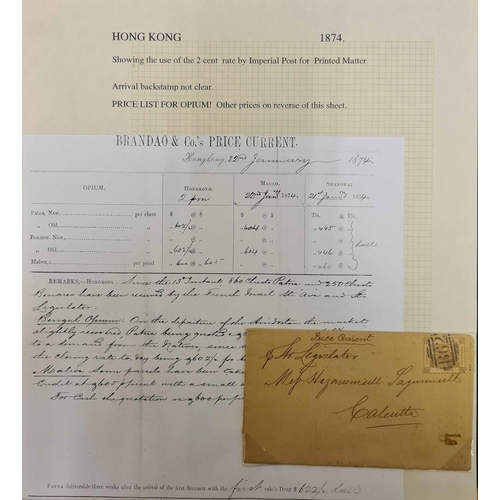 HONG KONG 1874.
Showing the use of the 2 cent rate by Imperial Post for Printed Matter
Arrival backstamp not clear.
PRICE LIST FOR OPIUM! Other prices on reverse of this sheet.
BRANDAO & Co.'s PRICE CURRENT.
Hongkong, 22nd January 1874.
OPIUM. HONGKONG. MACAO. SHANGHAI
2 pm 22nd Jany 1874 21st 1874
PATNA, New per chest $ @ $ $ @ $ Tls. @ Tls.
„ Old „ „ 602½ @ „ „ 604 @ „ „ 445 @ „
BENARES, New „ „ @ „ „ @ „ „ @ „
„ Old „ „ 602½ @ „ „ 604 @ „ „ 446 @ „
MALWA per picul. „ 600 @ „ 605 „ @ „ „ 460 @ „
REMARKS.—HONGKONG. Since the 13th Instant 860 Chests Patna and 250 Chests
Benares have been received by the French Mail St. Ava and St.
Legislator.
Bengal Opium. On the departure of the the market
slightly Patna being quoted
to a demand from the Natives, since
the closing rate to day being $602½ for
Malwa Some parcels have been
Credit at $605 picul with a small
For Cash the quotation is $600 per
PATNA deliverable three weeks after the arrival of the first Steamer with the first sale's Drug $ 622½
Price Current
p Str Legislator
Mess Hazareemull Sagurmull
Calcutta
B62